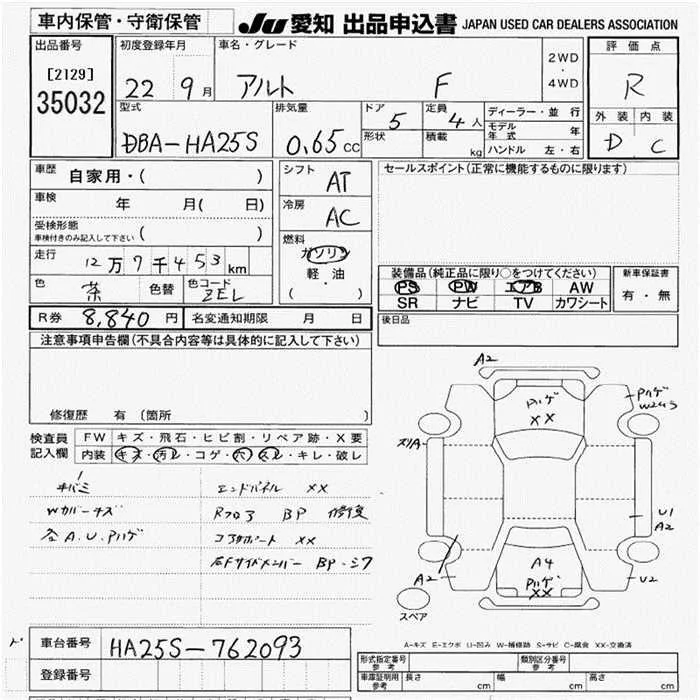 車内保管・守衛保管
JU 愛知 出品申込書 JAPAN USED CAR DEALERS ASSOCIATION
出品番号
[2129]
35032
初度登録年月
22 9月
車名・グレード
アルト F
2WD
・
4WD
評価点
R
外装 内装
D C
型式
DBA-HA25S
排気量
0.65cc
ドア
5
形状
定員
4人
積載
kg
ディーラー・並行
モデル年式 年
ハンドル 左・右
車歴
自家用・( )
車検
年 月( 日)
受検形態
車検付きのみ記入して下さい ( )
走行
12万7千453km
色
茶
色替
色コード
ZEL
R券 8,840 円
名変通知期限 月 日
シフト
AT
冷房
AC
燃料
ガソリン
軽・油
( )
セールスポイント(正常に機能するものに限ります)
装備品(純正品に限り○をつけてください)
PS PW エアB AW
SR ナビ TV カワシート
新車保証書
有・無
後日品
注意事項申告欄(不具合内容等は具体的に記入して下さい)
修復歴 有(箇所 )
検査員記入欄
FW キズ・飛石・ヒビ割・リペア跡・X要
内装 キズ・汚レ・コゲ・穴・スレ・キレ・破レ
キバミ
Wカバーキズ
各A.U.Pハゲ
エンドパネル XX
Rフロア BP 修復
コアサポート XX
右FサイドメンバーBP・シワ
A2
Pハゲ
XX
Pハゲ
W2キラ
U1
A2
A2
A4
Pハゲ
XX
U2
スペア
A-キズ E-エクボ U-凹み W-補修跡 S-サビ C-腐食 XX-交換済
車台番号 HA25S-762093
登録番号
形式指定番号 参考
類別区分番号 参考
車庫証明用 参考
長さ cm
幅 cm
高さ cm